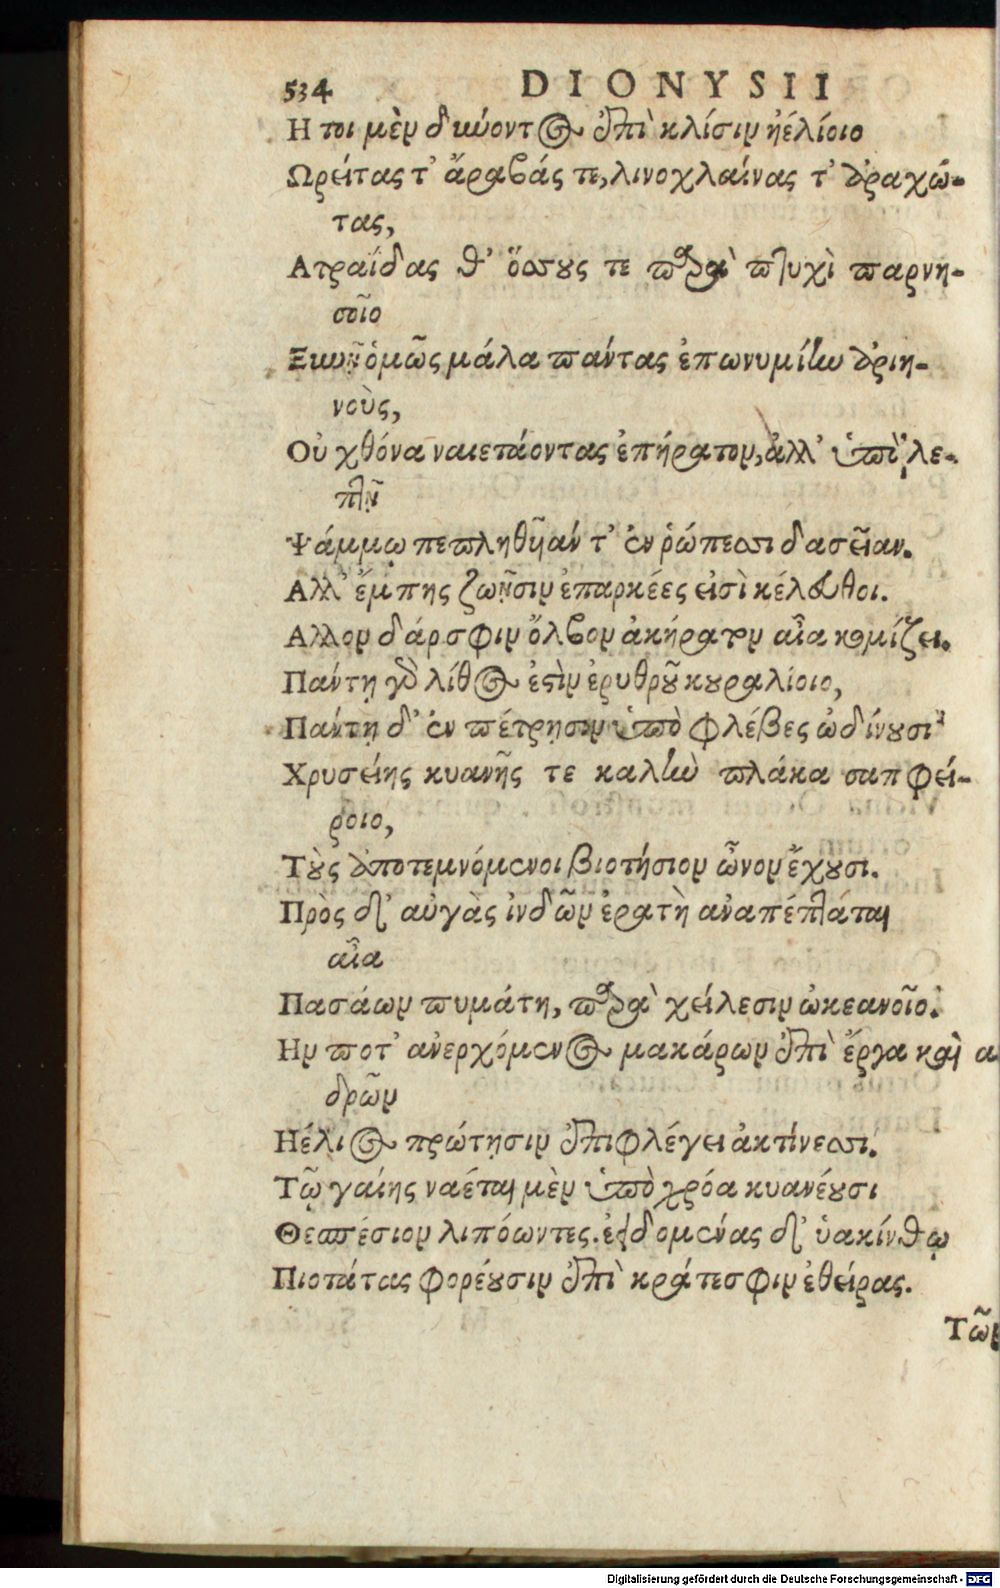 534 DIONYSII
Η τοι μὲν δύνοντος ἐπὶ κλίσιν ἠελίοιο
Ωρείτας τ᾽ ἄραβάς τε, λινοχλαίνας τ᾽ ἀραχώ-
τας,
Ατραΐδας θ᾽ ὅσσους τε παρὰ πτυχὶ παρνη-
σοῖο
Ξυνῇ ὁμῶς μάλα πάντας ἐπωνυμίην ἀριη-
νοὺς,
Οὐ χθόνα ναιετάοντας ἐπήρατον, ἀλλ᾽ ὑπὸ λε-
πτῇ
Ψάμμῳ πεπληθῆάν τ᾽ ἐν ῥώπεσσι δασεῖαν.
Αλλ᾽ ἔμπης ζωῇσιν ἐπαρκέες εἰσὶ κέλευθοι.
Αλλον δ᾽ άρσφιν ὄλβον ἀκήρατον αἶα κομίζει.
Πάντη γὸ λίθος ἐστὶν ἐρυθροῦ κουραλίοιο,
Πάντη δ᾽ ἐν πέτρῃσιν ὑπὸ φλέβες ὠδίνουσι
Χρυσείης κυανῆς τε καλὴν πλάκα σαπφεί-
ροιο,
Τοὺς ἀποτεμνόμενοι βιοτήσιον ὦνον ἔχουσι.
Πρὸς δ᾽ αὐγὰς ἰνδῶν ἐρατὴ ἀναπέπταται
αἶα
Πασάων πυμάτη, παρὰ χείλεσιν ὠκεανοῖο.
Ην ποτ᾽ ἀνερχόμενος μακάρων ἐπὶ ἔργα καὶ α
δρῶν
Ηέλιος πρώτῃσιν ἐπιφλέγει ἀκτίνεσσι.
Τῷ γαίης ναέται μὲν ὑπὸ χρόα κυανέουσι
Θεσπέσιον λιπόωντες. εἰδομένας δ᾽ ὑακίνθῳ
Πιοτάτας φορέουσιν ἐπὶ κράτεσφιν ἐθείρας.
Τῶν
Digitalisierung gefördert durch die Deutsche Forschungsgemeinschaft - DFG